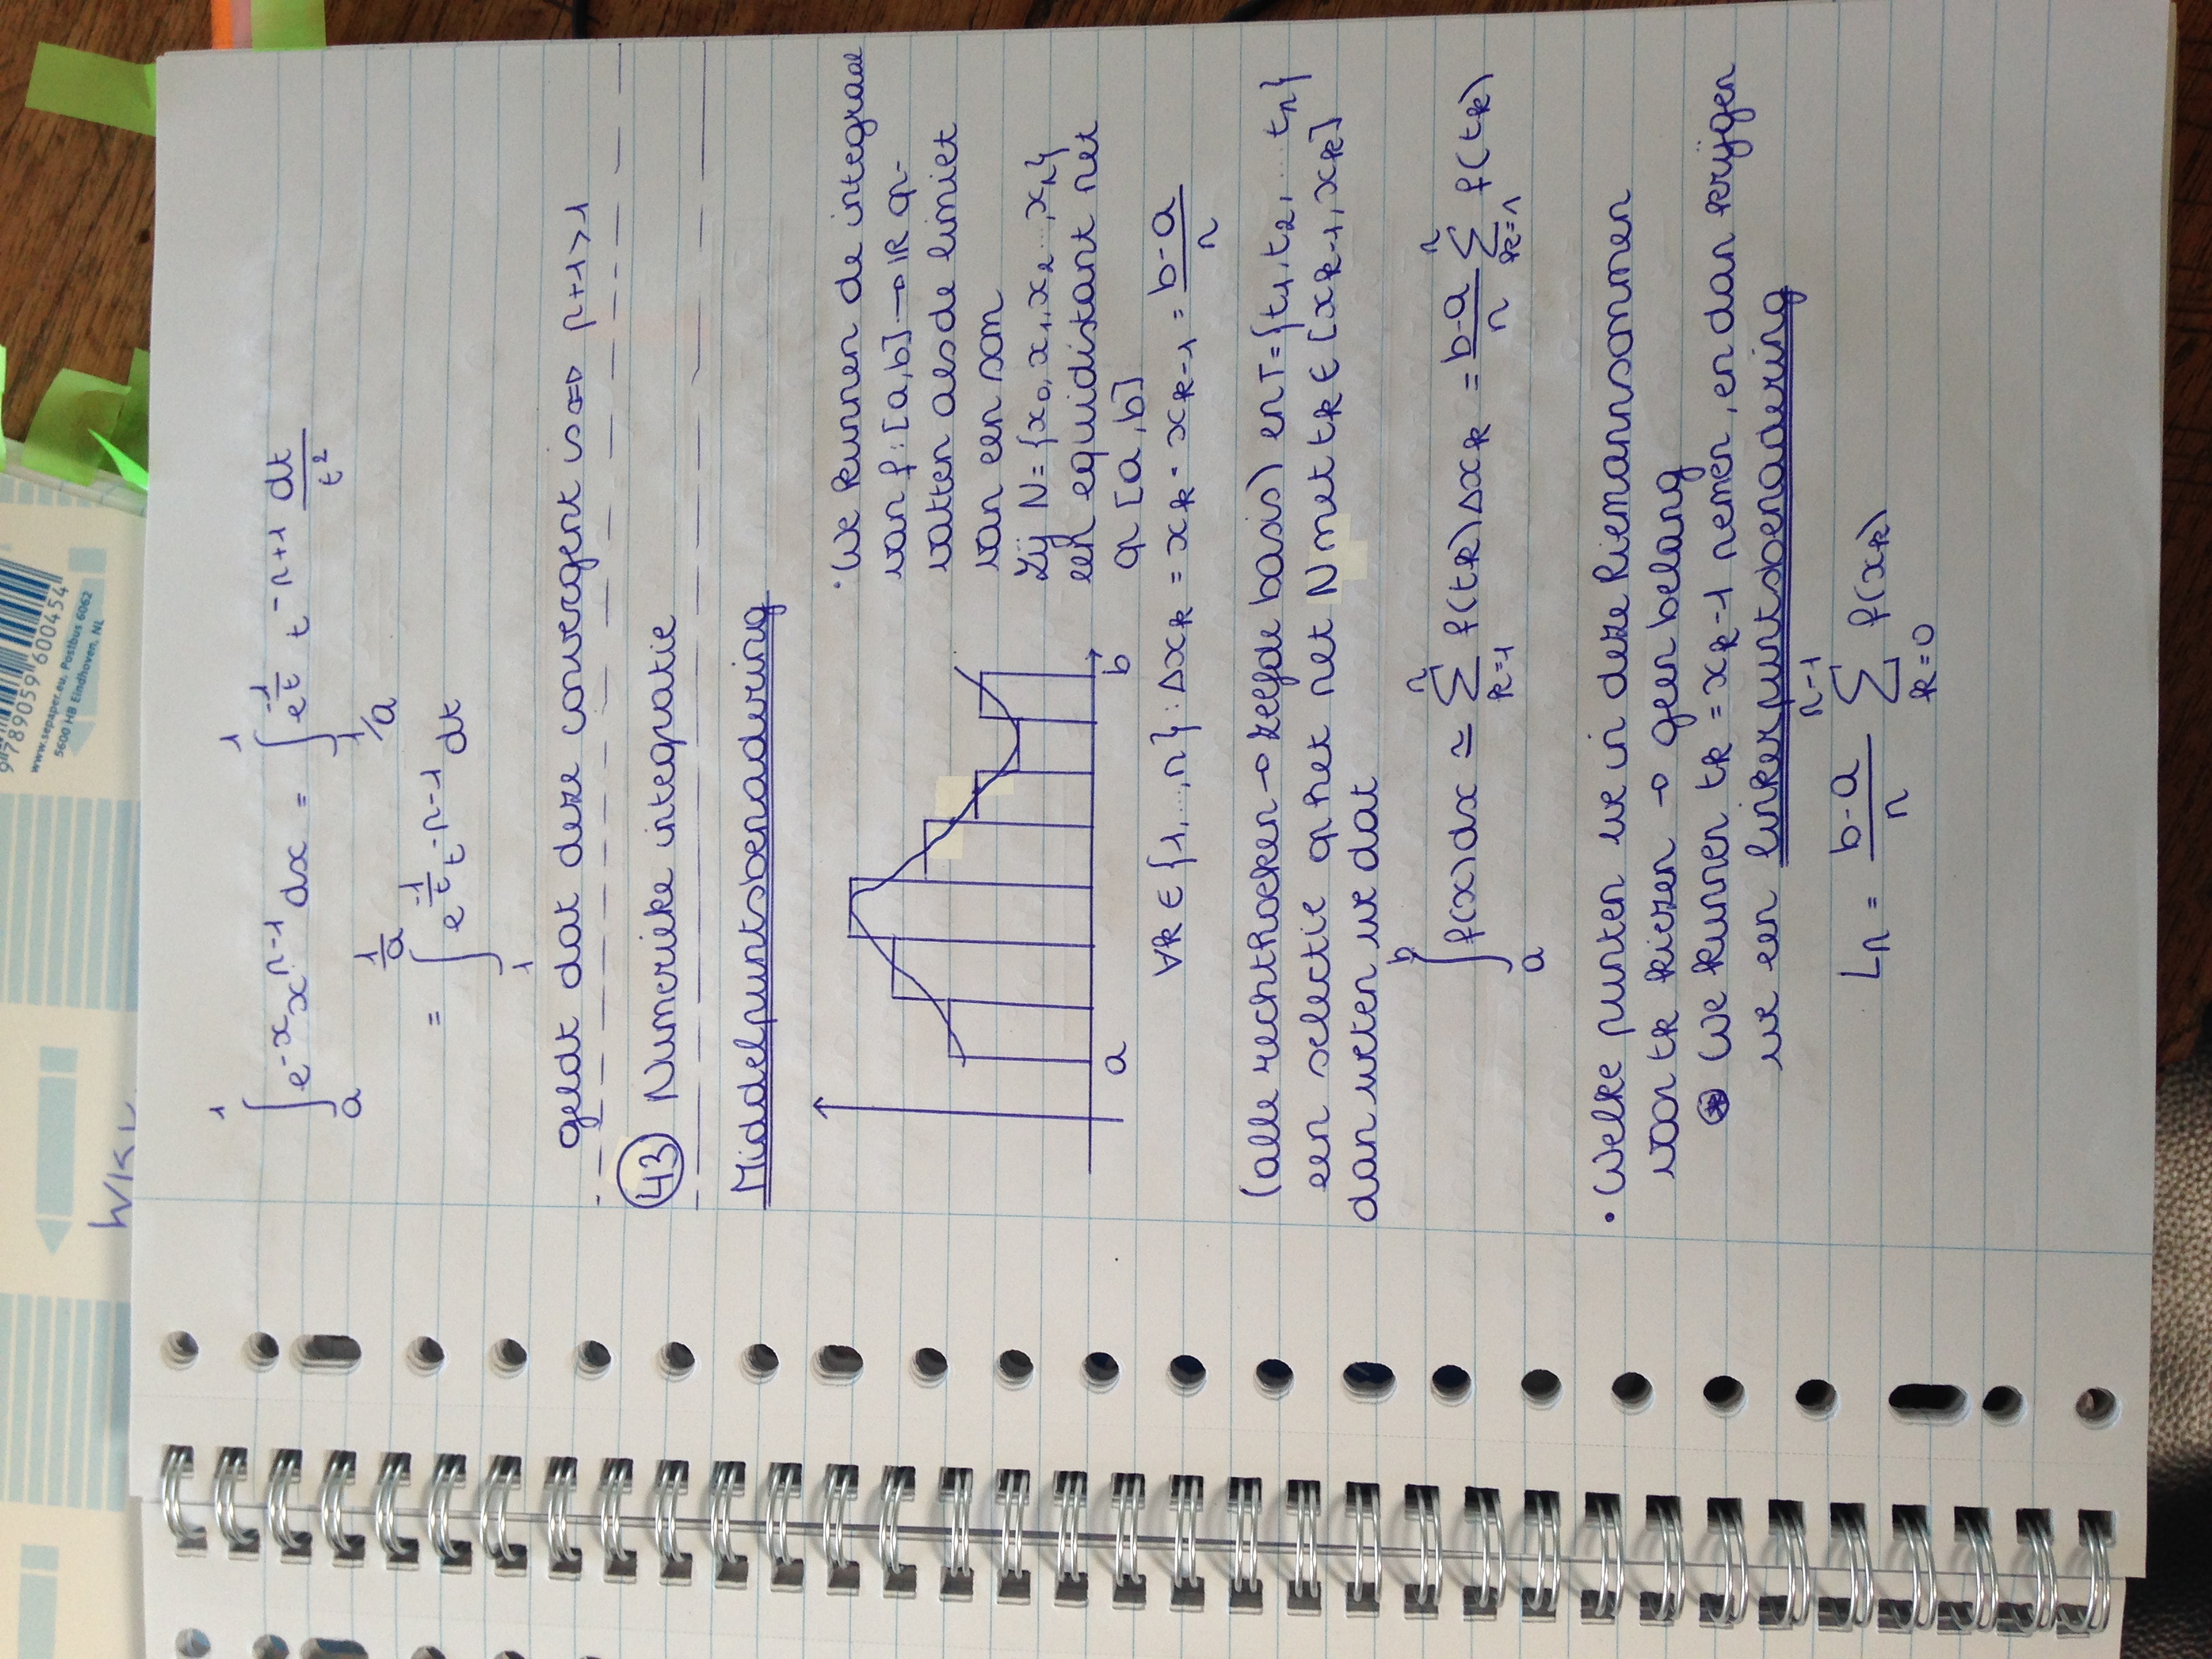 9 789059 600454
www.sepaper.eu, Postbus 6062
5600 HB Eindhoven, NL
∫_a^1 e^{-x} x^{n-1} dx = ∫_{1/a}^1 e^{-1/t} t^{-n+1} dt/t²
= ∫_1^{1/a} e^{-1/t} t^{-n-1} dt
geldt dat deze convergent is ⇔ n+1>1
43 Numerieke integratie
Middelpuntsbenadering
• We kunnen de integraal
van f: [a,b] → ℝ op-
vatten als de limiet
van een som
Zij N = {x₀, x₁, x₂ ..., xₙ}
een equidistant net
op [a,b]
a b
∀k ∈ {1,...,n} : Δxₖ = xₖ - xₖ₋₁ = (b-a)/n
(alle rechthoeken → zelfde basis) en T = {t₁, t₂, ... tₙ}
een selectie op het net N met tₖ ∈ [xₖ₋₁, xₖ]
dan weten we dat
∫_a^b f(x)dx ≃ ∑_{k=1}^n f(tₖ)Δxₖ = (b-a)/n ∑_{k=1}^n f(tₖ)
• Welke punten we in deze Riemannsommen
voor tₖ kiezen → geen belang
⊛ We kunnen tₖ = xₖ₋₁ nemen, en dan krijgen
we een linkerpuntsbenadering
Lₙ = (b-a)/n ∑_{k=0}^{n-1} f(xₖ)